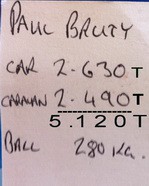 PAUL BRUTY
CAR 2.630T
CARAVAN 2.490T
5.120T
BALL 280 KG.